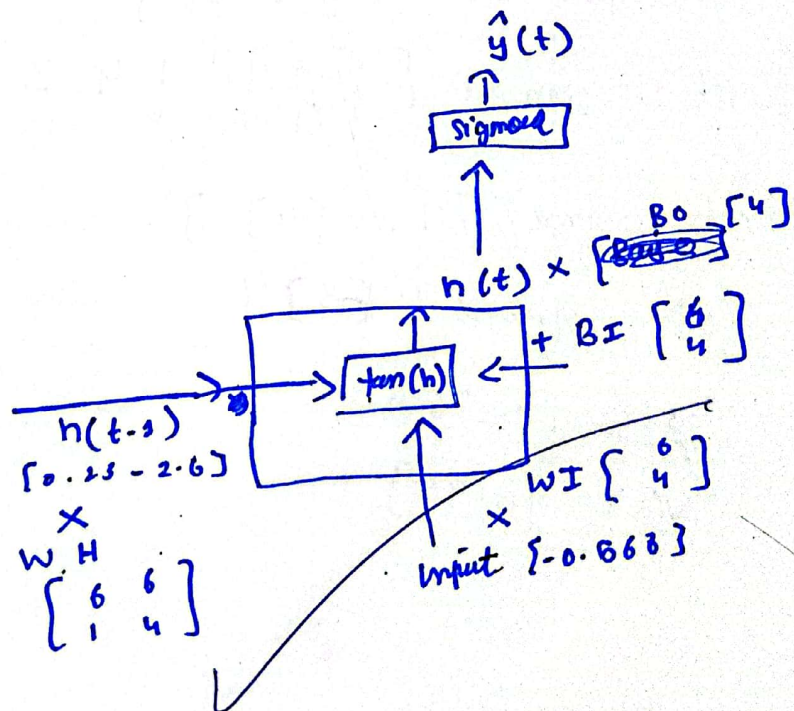 ŷ(t)
sigmoid
BO [4]
h(t) ×
+ BI [6
4]
tan(h)
h(t-1)
[0.25 - 2.6]
×
W.H
[6 6
1 4]
WI [6
4]
×
input [-0.563]